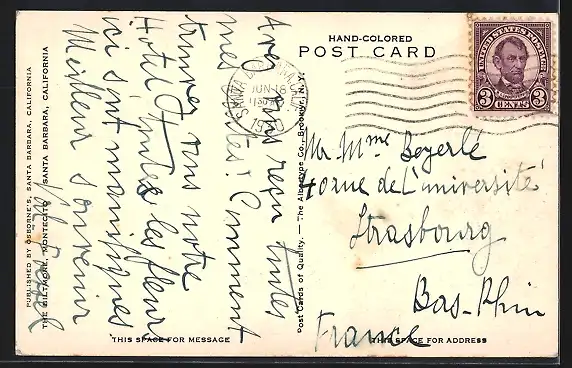 HAND-COLORED
POST CARD
UNITED STATES POSTAGE
3 CENTS 3
SANTA BARBARA, CALIF.
JUN 18
1130 AM
1930
Mr Mme Beyerlé
rue de L'université
Strasbourg
Bas-Rhin
France
THIS SPACE FOR ADDRESS
THIS SPACE FOR MESSAGE
Post Cards of Quality. — The Albertype Co., Brooklyn, N. Y.
PUBLISHED BY OSBORNE'S, SANTA BARBARA, CALIFORNIA
THE BILTMORE, MONTECITO, SANTA BARBARA, CALIFORNIA
reçu toutes
mes cartes? Comment
trouvez vous notre
Hotel les fleurs
ici sont magnifiques
Meilleur souvenir